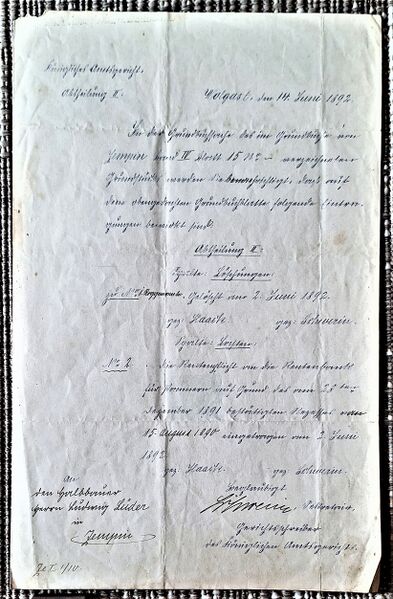 Königliches Amtsgericht.
Abtheilung II.
Wolgast, den 14. Juni 1892.
In der Grundbuchsache des im Grundbuche von
Zempin Band IV Blatt 15 No – verzeichneten
Grundstücks werden Sie benachrichtigt, daß auf
dem obengedachten Grundbuchblatte folgende Eintra-
gungen bewirkt sind:
Abtheilung II:
Spalte: Löschungen:
zu No 1 Gelöscht am 2. Juni 1892.
gez. Haase. gez. Schwerin.
Spalte: Lasten:
No 2. die Rentenpflicht an die Rentenbank
für Pommern auf Grund des vom 28ten
Dezember 1891 bestätigten Rezesses vom
15. August 1890 eingetragen am 2. Juni
1892.
gez. Haase. gez. Schwerin.
beglaubigt
Schwerin, Sekretair,
Gerichtsschreiber
des Königlichen Amtsgerichts.
An
den Halbbauer
Herrn Ludwig Lüder
in
Zempin